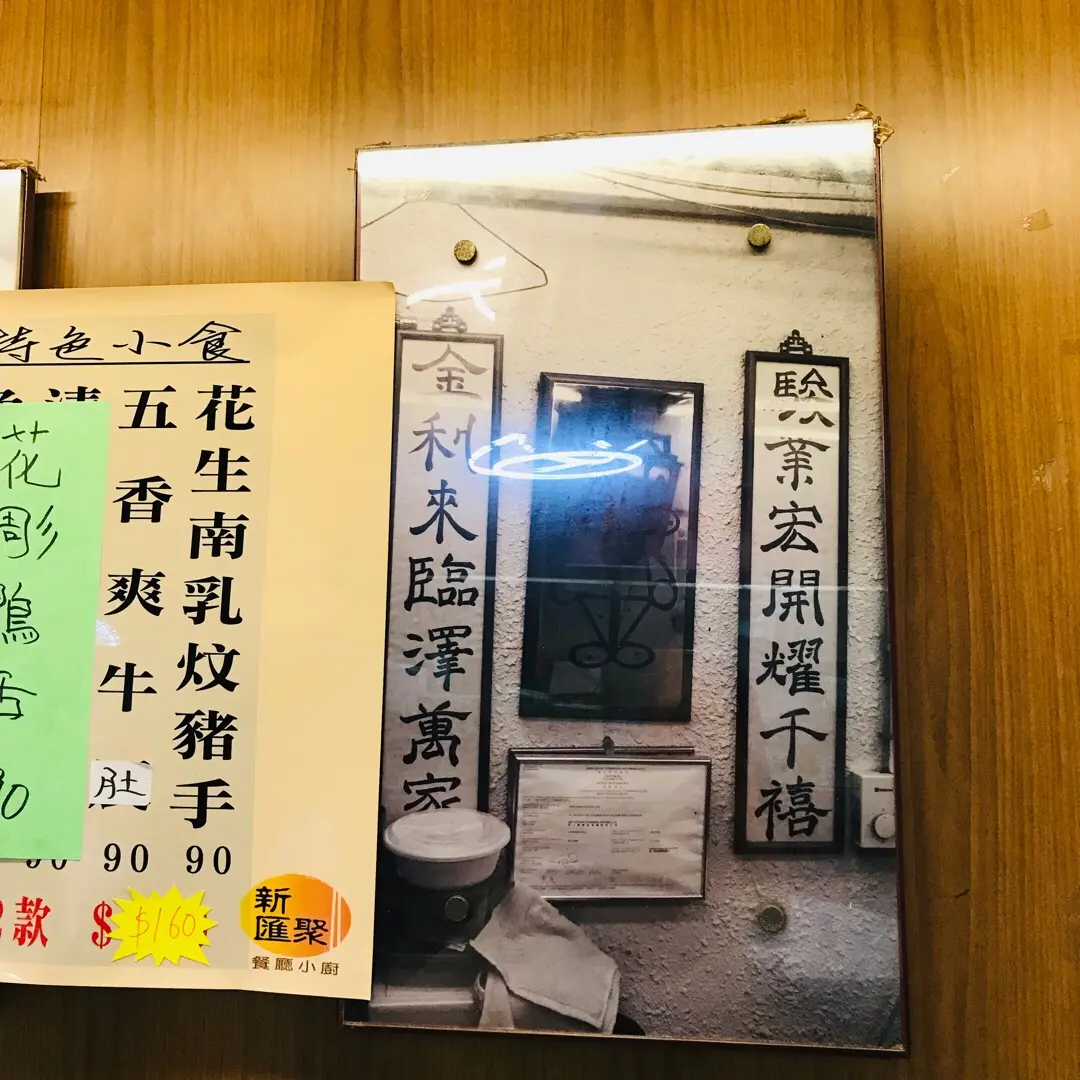 特色小食
花生南乳炆豬手
90
五香爽牛肚
90
清
90
花彫鴨蛋
款
$
$160
新匯聚
餐廳小廚
駿業宏開耀千禧
金利來臨澤萬家